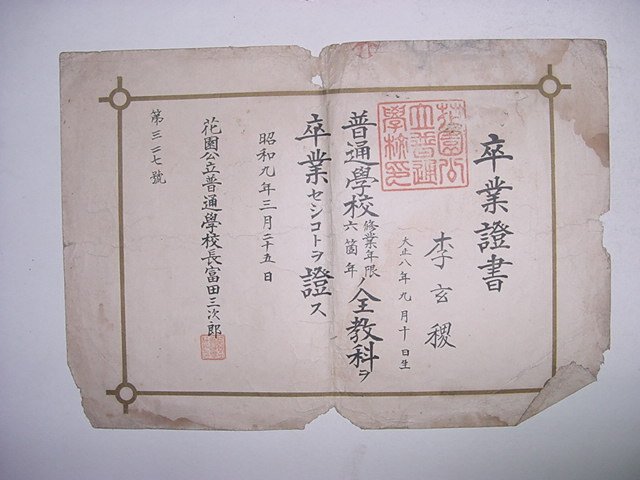 卒業證書
李玄稷
大正八年九月十日生
花園公
立普通
學校印
普通學校修業年限六箇年ノ全教科ヲ
卒業セシコトヲ證ス
昭和九年三月二十五日
花園公立普通學校長富田三次郎
第三一七號